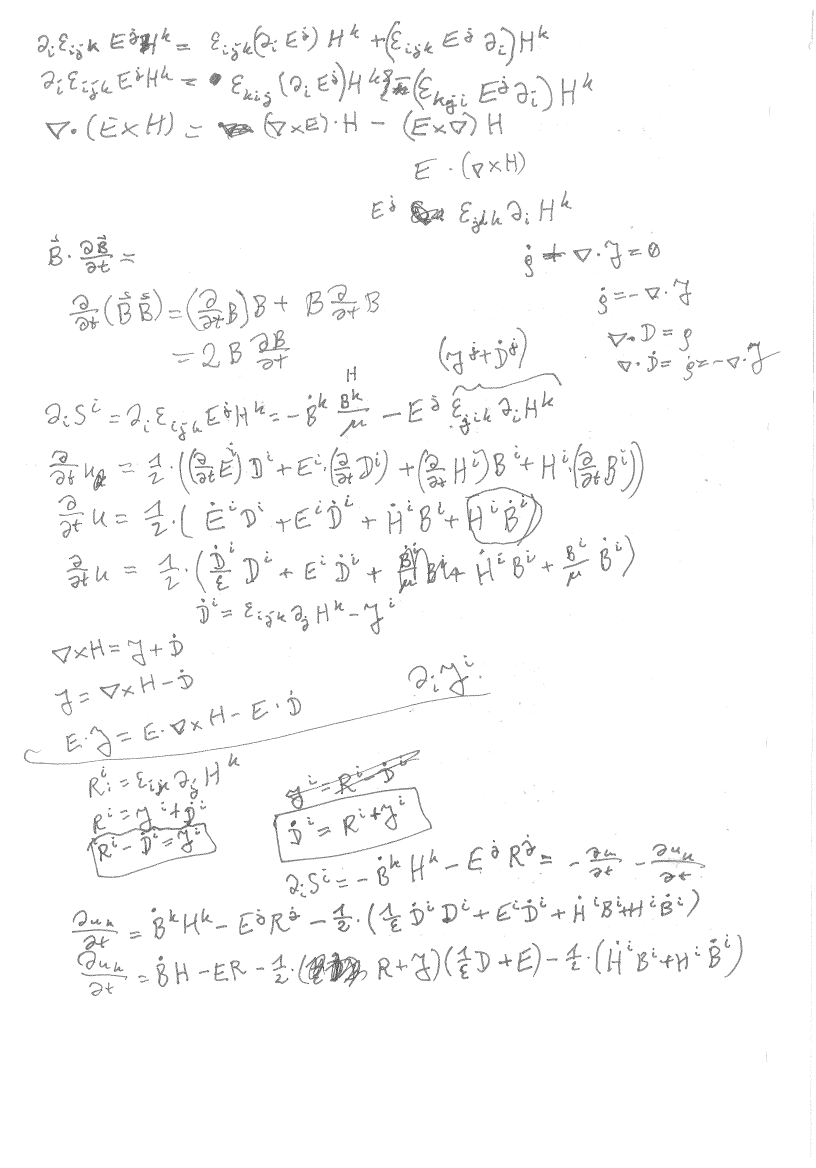 ∂ᵢεᵢⱼₖ EʲHᵏ = εᵢⱼₖ(∂ᵢ Eʲ) Hᵏ + (εᵢⱼₖ Eʲ ∂ᵢ)Hᵏ
∂ᵢεᵢⱼₖ EʲHᵏ = εₖᵢⱼ (∂ᵢ Eʲ)Hᵏ - (εₖⱼᵢ Eʲ∂ᵢ)Hᵏ
∇·(E×H) = (∇×E)·H − (E×∇)H
E · (∇×H)
Eʲ εⱼᵢₖ ∂ᵢ Hᵏ
B⃗ · ∂B⃗/∂t =
ρ̇ + ∇·J = 0
∂/∂t (B⃗ B⃗) = (∂/∂t B)B + B ∂/∂t B
ρ̇ = −∇·J
= 2 B ∂B/∂t
∇·D = ρ
∇·Ḋ = ρ̇ = −∇·J
(Jʲ + Ḋʲ)
H
∂ᵢSⁱ = ∂ᵢεᵢⱼₖEʲHᵏ = −Ḃᵏ Bᵏ/μ − Eʲ εⱼᵢₖ ∂ᵢHᵏ
∂/∂t u = 1/2 · ((∂/∂t Eⁱ) Dⁱ + Eⁱ·(∂/∂t Dⁱ) + (∂/∂t Hⁱ)Bⁱ + Hⁱ·(∂/∂t Bⁱ))
∂/∂t u = 1/2 · ( Ėⁱ Dⁱ + Eⁱ Ḋⁱ + Ḣⁱ Bⁱ + Hⁱ Ḃⁱ )
∂/∂t u = 1/2 · ( Ḋⁱ/ε Dⁱ + Eⁱ Ḋⁱ + Ḣⁱ Bⁱ + Bⁱ/μ Ḃⁱ )
Ḋⁱ = εᵢⱼₖ ∂ⱼ Hᵏ − Jⁱ
∇×H = J + Ḋ
J = ∇×H − Ḋ
∂ᵢJⁱ
E·J = E·∇×H − E·Ḋ
Rⁱ = εᵢⱼₖ ∂ⱼ Hᵏ
Jⁱ = Rⁱ − Ḋⁱ
Rⁱ = Jⁱ + Ḋⁱ
Ḋⁱ = Rⁱ + Jⁱ
Rⁱ − Ḋⁱ = Jⁱ
∂ᵢSⁱ = −Ḃᵏ Hᵏ − Eʲ Rʲ = − ∂u/∂t − ∂uₖ/∂t
∂uₖ/∂t = ḂᵏHᵏ − EʲRʲ − 1/2 · (1/ε Ḋⁱ Dⁱ + EⁱḊⁱ + Ḣⁱ Bⁱ + Hⁱ Ḃⁱ)
∂uₖ/∂t = ḂH − ER − 1/2 · ( R + J)(1/ε D + E) − 1/2 · (Ḣⁱ Bⁱ + Hⁱ Ḃⁱ)